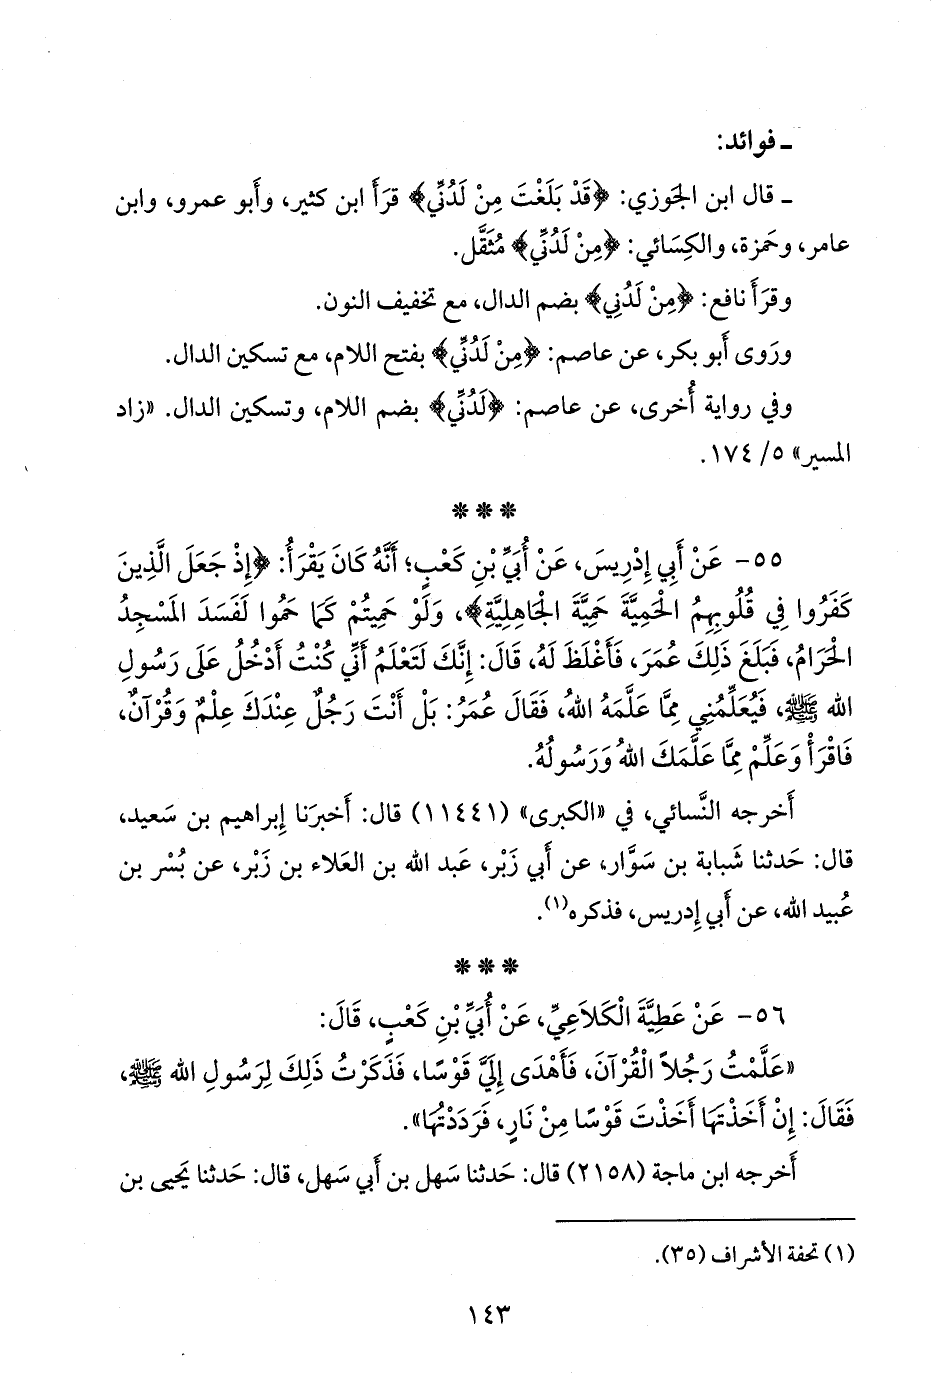 ـ فوائد:
ـ قال ابن الجَوزي: ﴿قَدْ بَلَغْتَ مِنْ لَدُنِّي﴾ قرَأَ ابن كثير، وأَبو عمرو، وابن
عامر، وحَمزة، والكِسَائي: ﴿مِنْ لَدُنِّي﴾ مُثَقَّل.
وقرَأَ نافع: ﴿مِنْ لَدُنِي﴾ بضم الدال، مع تخفيف النون.
ورَوى أَبو بكر، عن عاصم: ﴿مِنْ لَدُنِّي﴾ بفتح اللام، مع تسكين الدال.
وفي رواية أُخرى، عن عاصم: ﴿لَدُنِّي﴾ بضم اللام، وتسكين الدال. «زاد
المسير» ٥/ ١٧٤.
* * *
٥٥- عَنْ أَبِي إِدْرِيسَ، عَنْ أُبَيِّ بْنِ كَعْبٍ؛ أَنَّهُ كَانَ يَقْرَأُ: ﴿إِذْ جَعَلَ الَّذِينَ
كَفَرُوا فِي قُلُوبِهِمُ الْحَمِيَّةَ حَمِيَّةَ الْجَاهِلِيَّةِ﴾، وَلَوْ حَمِيتُمْ كَمَا حَمُوا لَفَسَدَ الْمَسْجِدُ
الْحَرَامُ، فَبَلَغَ ذَلِكَ عُمَرَ، فَأَغْلَظَ لَهُ، قَالَ: إِنَّكَ لَتَعْلَمُ أَنِّي كُنْتُ أَدْخُلُ عَلَى رَسُولِ
الله ﷺ، فَيُعَلِّمُنِي مِمَّا عَلَّمَهُ اللهُ، فَقَالَ عُمَرُ: بَلْ أَنْتَ رَجُلٌ عِنْدَكَ عِلْمٌ وَقُرْآنٌ،
فَاقْرَأْ وَعَلِّمْ مِمَّا عَلَّمَكَ اللهُ وَرَسُولُهُ.
أَخرجه النَّسائي، في «الكبرى» (١١٤٤١) قال: أَخبرَنا إِبراهيم بن سَعيد،
قال: حَدثنا شَبابة بن سَوَّار، عن أَبي زَبْر، عَبد الله بن العَلاء بن زَبْر، عن بُسْر بن
عُبيد الله، عن أَبي إِدريس، فذكره(١).
* * *
٥٦- عَنْ عَطِيَّةَ الْكَلاَعِيِّ، عَنْ أُبَيِّ بْنِ كَعْبٍ، قَالَ:
«عَلَّمْتُ رَجُلاً الْقُرْآنَ، فَأَهْدَى إِلَيَّ قَوْسًا، فَذَكَرْتُ ذَلِكَ لِرَسُولِ الله ﷺ،
فَقَالَ: إِنْ أَخَذْتَهَا أَخَذْتَ قَوْسًا مِنْ نَارٍ، فَرَدَدْتُهَا».
أَخرجه ابن ماجة (٢١٥٨) قال: حَدثنا سَهل بن أَبي سَهل، قال: حَدثنا يَحيى بن
(١) تحفة الأشراف (٣٥).
١٤٣